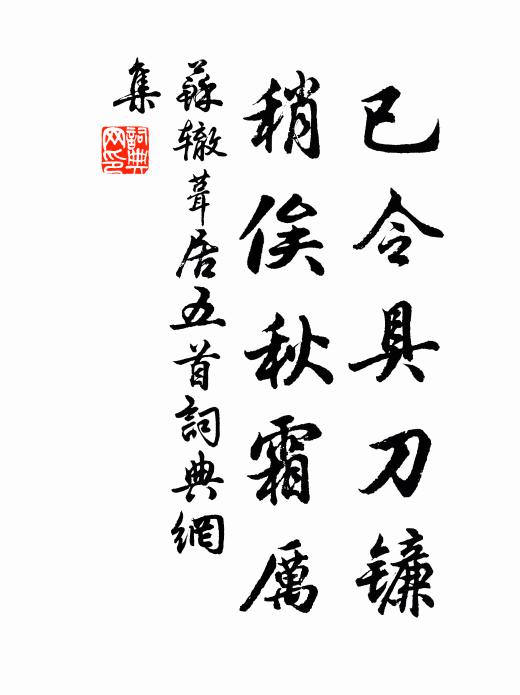 已令具刀镰
稍俟秋霜厲
蘇辙葺居五首詞典網
集
詞典
网印